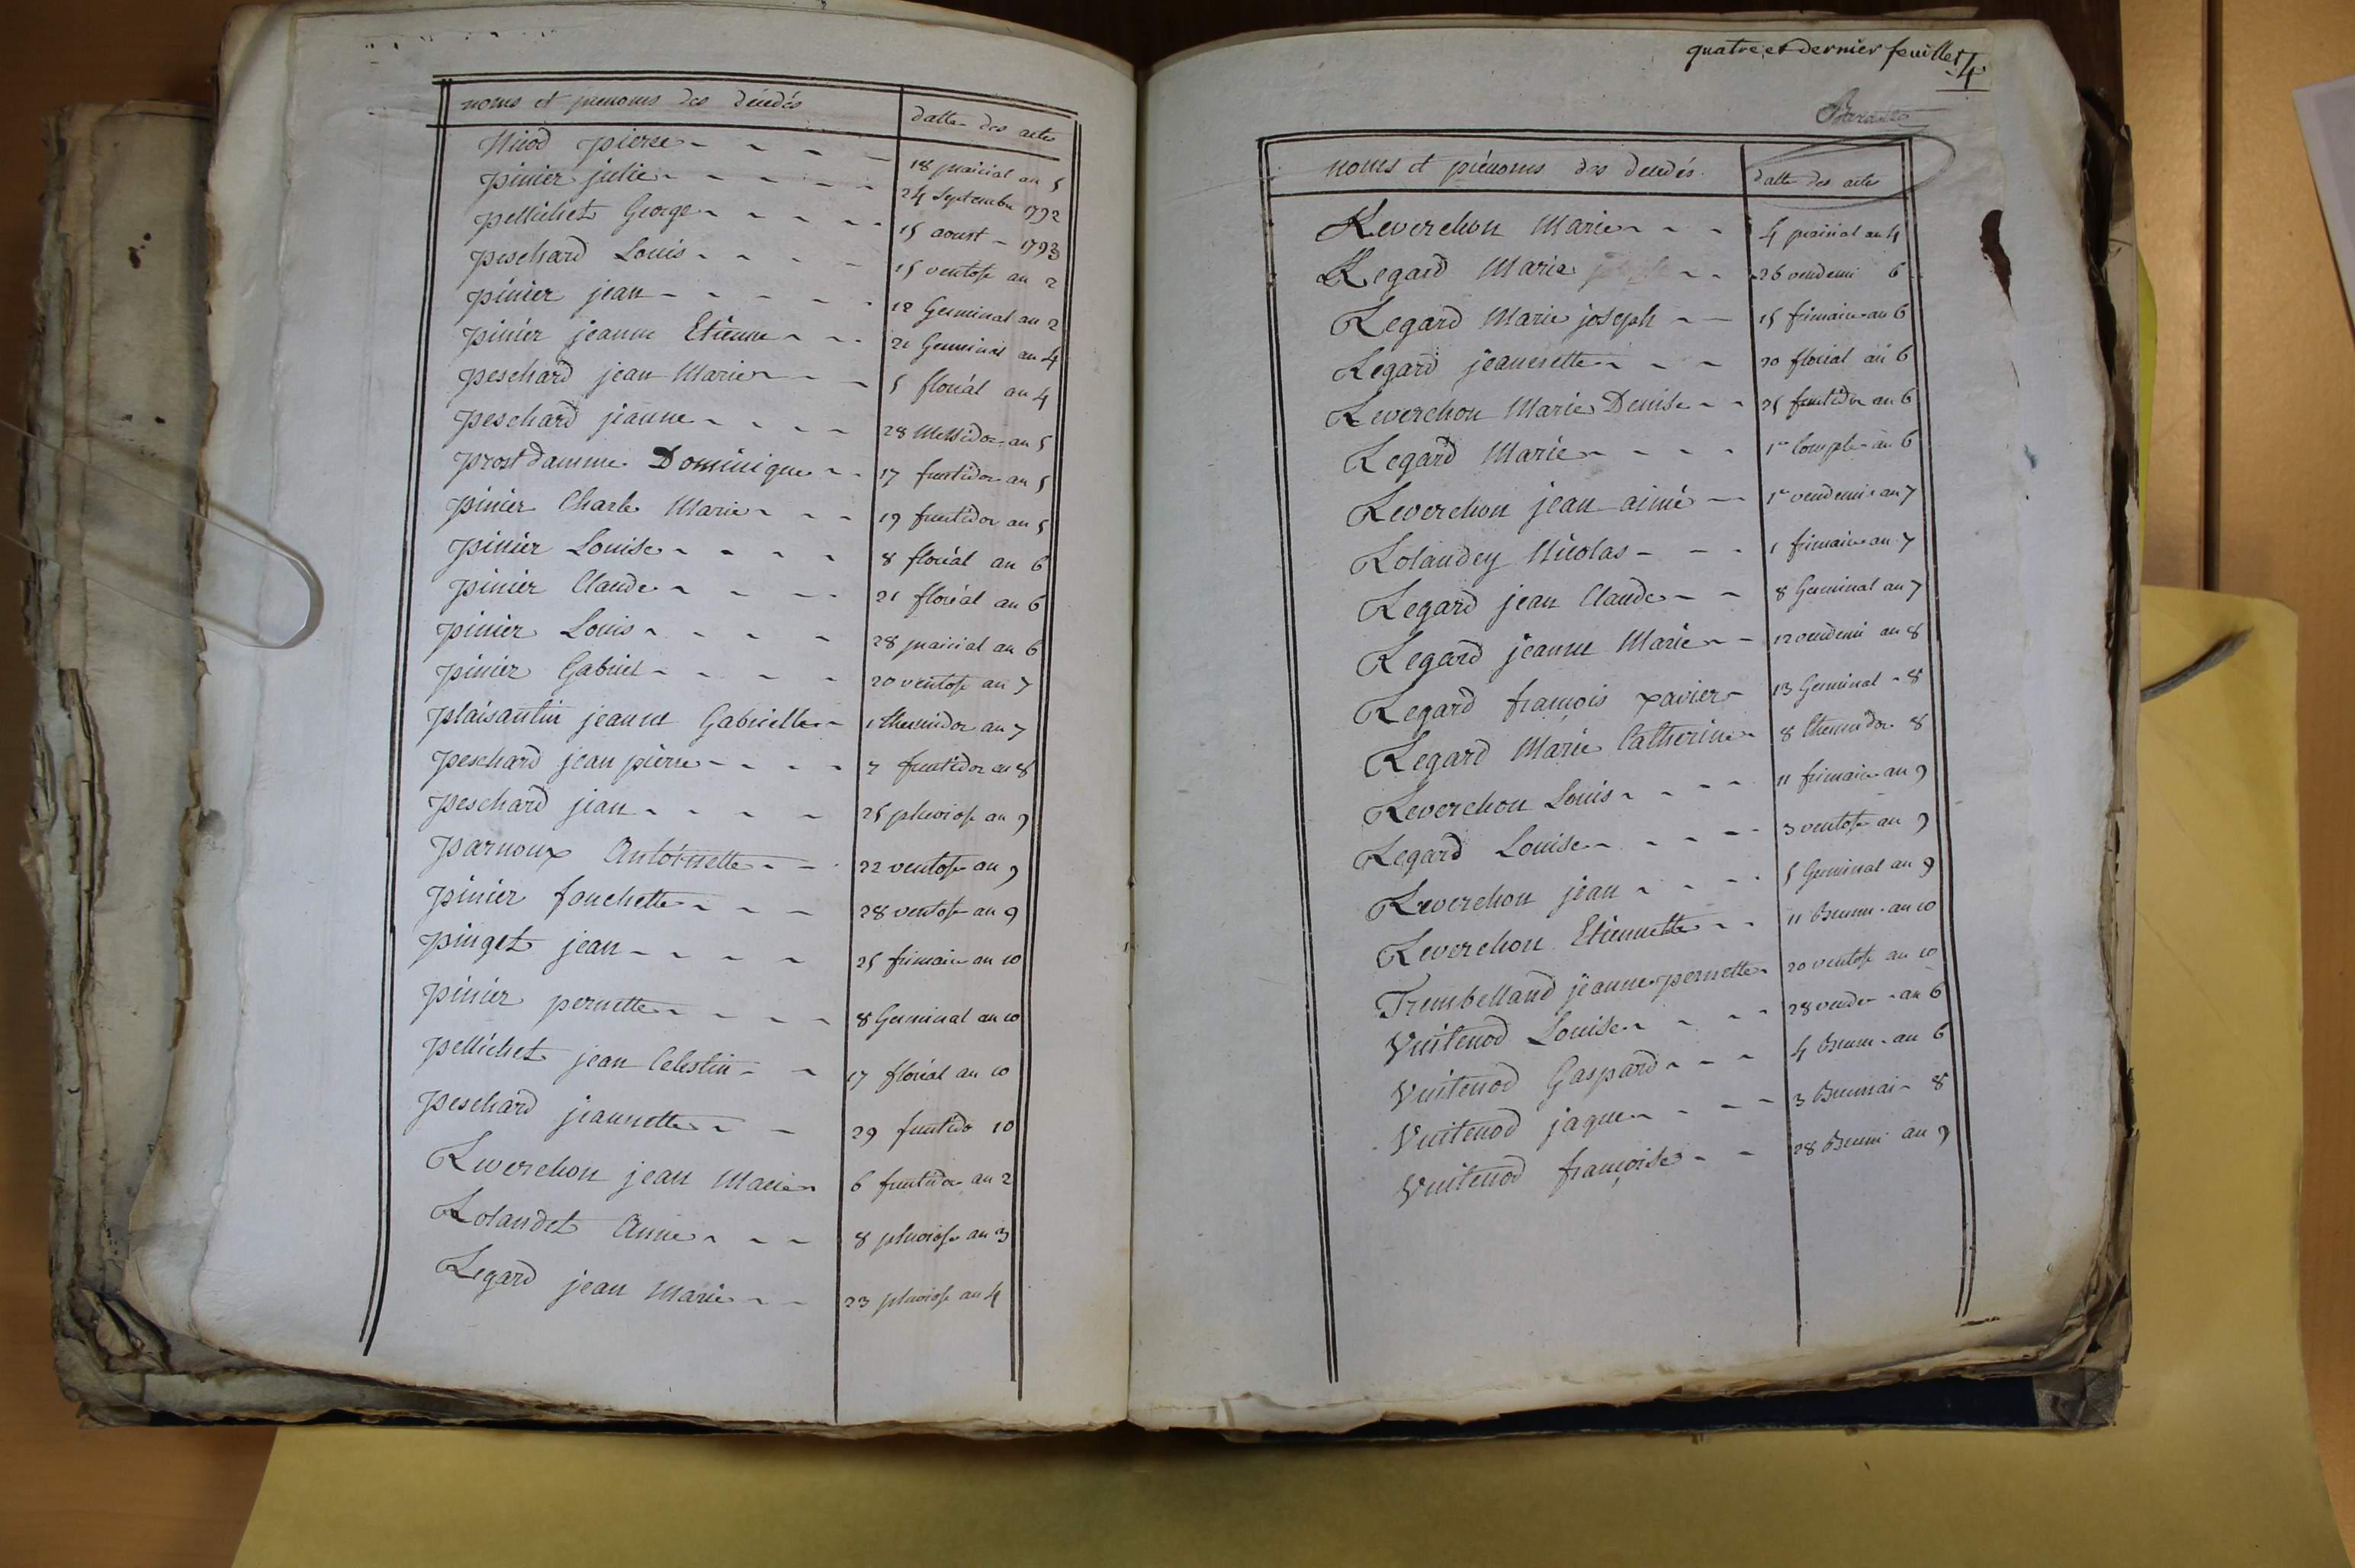 noms et prenoms des décédés datte des actes
Niod pierre 18 prairial an 5
pinier julie 24 Septembre 1792
pellichet George 15 aoust 1793
peschard Louis 15 ventose an 2
pinier jean 12 Germinal an 2
pinier jeanne Etienne 21 Germinal an 4
peschard jean Marie 5 floréal an 4
peschard jeanne 28 Messidor an 5
prost damme Dominique 17 fructidor an 5
pinier Charle Marie 19 fructidor an 5
pinier Louise 8 floréal an 6
pinier Claude 21 floréal an 6
pinier Louis 28 prairial an 6
pinier Gabriel 20 ventose an 7
plaisantin jeanne Gabrielle 1 thermidor an 7
peschard jean pierre 7 fructidor an 8
peschard jean 25 pluviose an 9
parnoux Antoinette 22 ventose an 9
pinier fonchette 28 ventose an 9
pinget jean 25 frimaire an 10
pinier pernette 8 Germinal an 10
pellichet jean Celestin 17 floréal an 10
peschard jeannette 29 fructido 10
Reverchon jean Marie 6 fructidor an 2
Rolandet Anne 8 pluviose an 3
Regard jean Marie 23 pluviose an 4
quatre et dernier feuillet 4
noms et prénoms des décédés datte des actes
Reverchon Marie 4 prairial an 4
Regard Marie 26 vendemi 6
Regard Marie joseph 15 frimaire an 6
Regard jeannette 20 floréal an 6
Reverchon Marie Denise 25 fructidor an 6
Regard Marie 1er Comple an 6
Reverchon jean aimé 1er vendemi an 7
Rolandey Nicolas 1 frimaire an 7
Regard jean Claude 8 Germinal an 7
Regard jeanne Marie 12 vendemi an 8
Regard françois xavier 13 Germinal 8
Regard Marie Catherine 8 thermidor 8
Reverchon Louis 11 frimaire an 9
Regard Louise 3 ventose an 9
Reverchon jean 5 Germinal an 9
Reverchon Etiennette 11 Brum an 10
Trembelland jeanne pernette 20 ventose an 10
Vuitenod Louise 28 vende an 6
Vuitenod Gaspard 4 Brum an 6
Vuitenod jaque 3 Brumai 8
Vuitenod françoise 28 Brum an 9